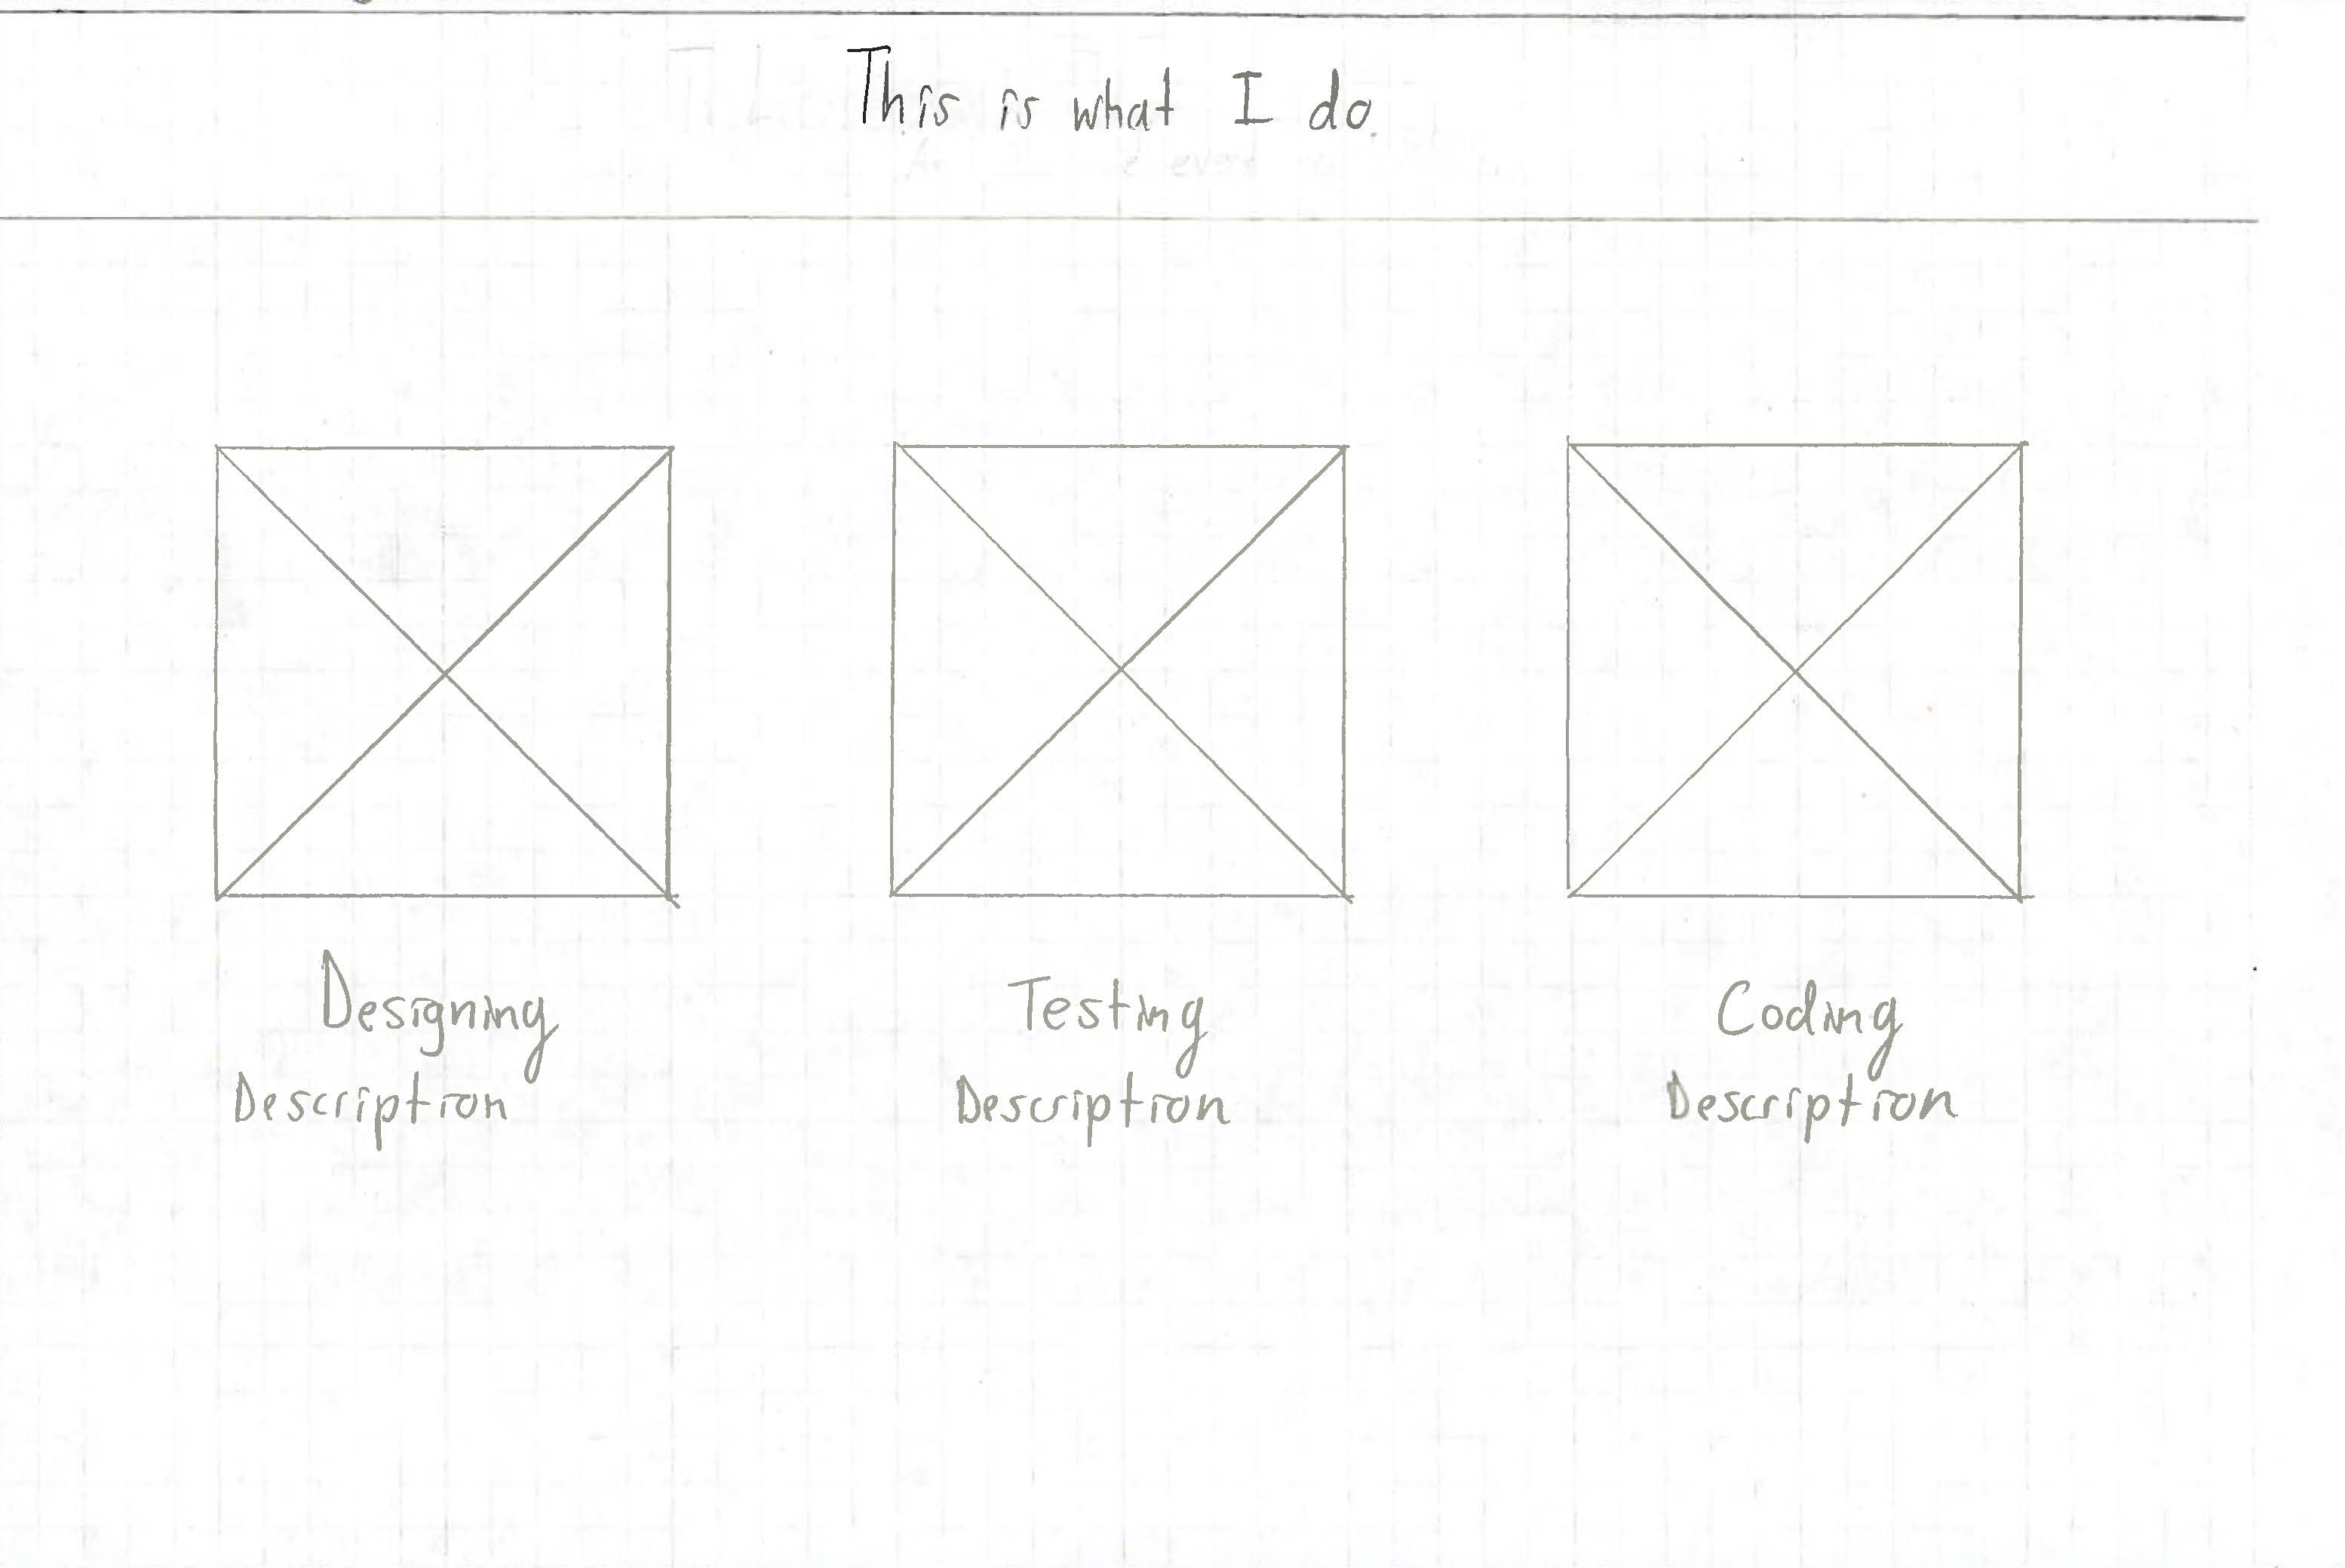 This is what I do.
Designing
Description
Testing
Description
Coding
Description